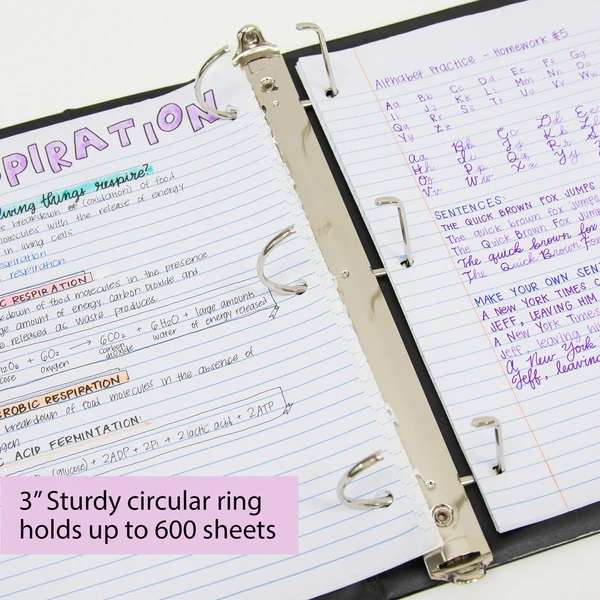 PIRATION
living things respire?
breakdown of (oxidation) of food
molecules with the release of energy
in living cells
respiration
respiration
C RESPIRATION
down of food molecules in the presence
amount of energy carbon dioxide and
are released as waste products.
+ 6O2 → 6CO2 + 6H2O + large amounts
oxygen carbon dioxide water of energy released
EROBIC RESPIRATION
breakdown of food molecules in the absence of
IC ACID FERMINTATION:
(glucose) + 2ADP + 2Pi → 2 lactic acid + 2ATP
3” Sturdy circular ring
holds up to 600 sheets
Alphabet Practice - Homework #5
Aa Bb Cc Dd Ee Ff Gg
Ii Jj Kk Ll Mm Nn Oo
Qq Rr Ss Tt Uu Vv Wx
Yy Zz
Aa Bb Cc Dd Ee
Hh Ii Jj Kk Ll
Oo Pp Qq Rr Ss
Vv Ww Xx Yy Zz
SENTENCES:
THE QUICK BROWN FOX JUMPS
The quick brown fox jumps
The Quick Brown Fox Jumps
The quick brown fox
The Quick Brown Fox
MAKE YOUR OWN SENT
A NEW YORK TIMES C
JEFF, LEAVING HIM
A New York Times
Jeff, leaving him
A New York
Jeff, leaving